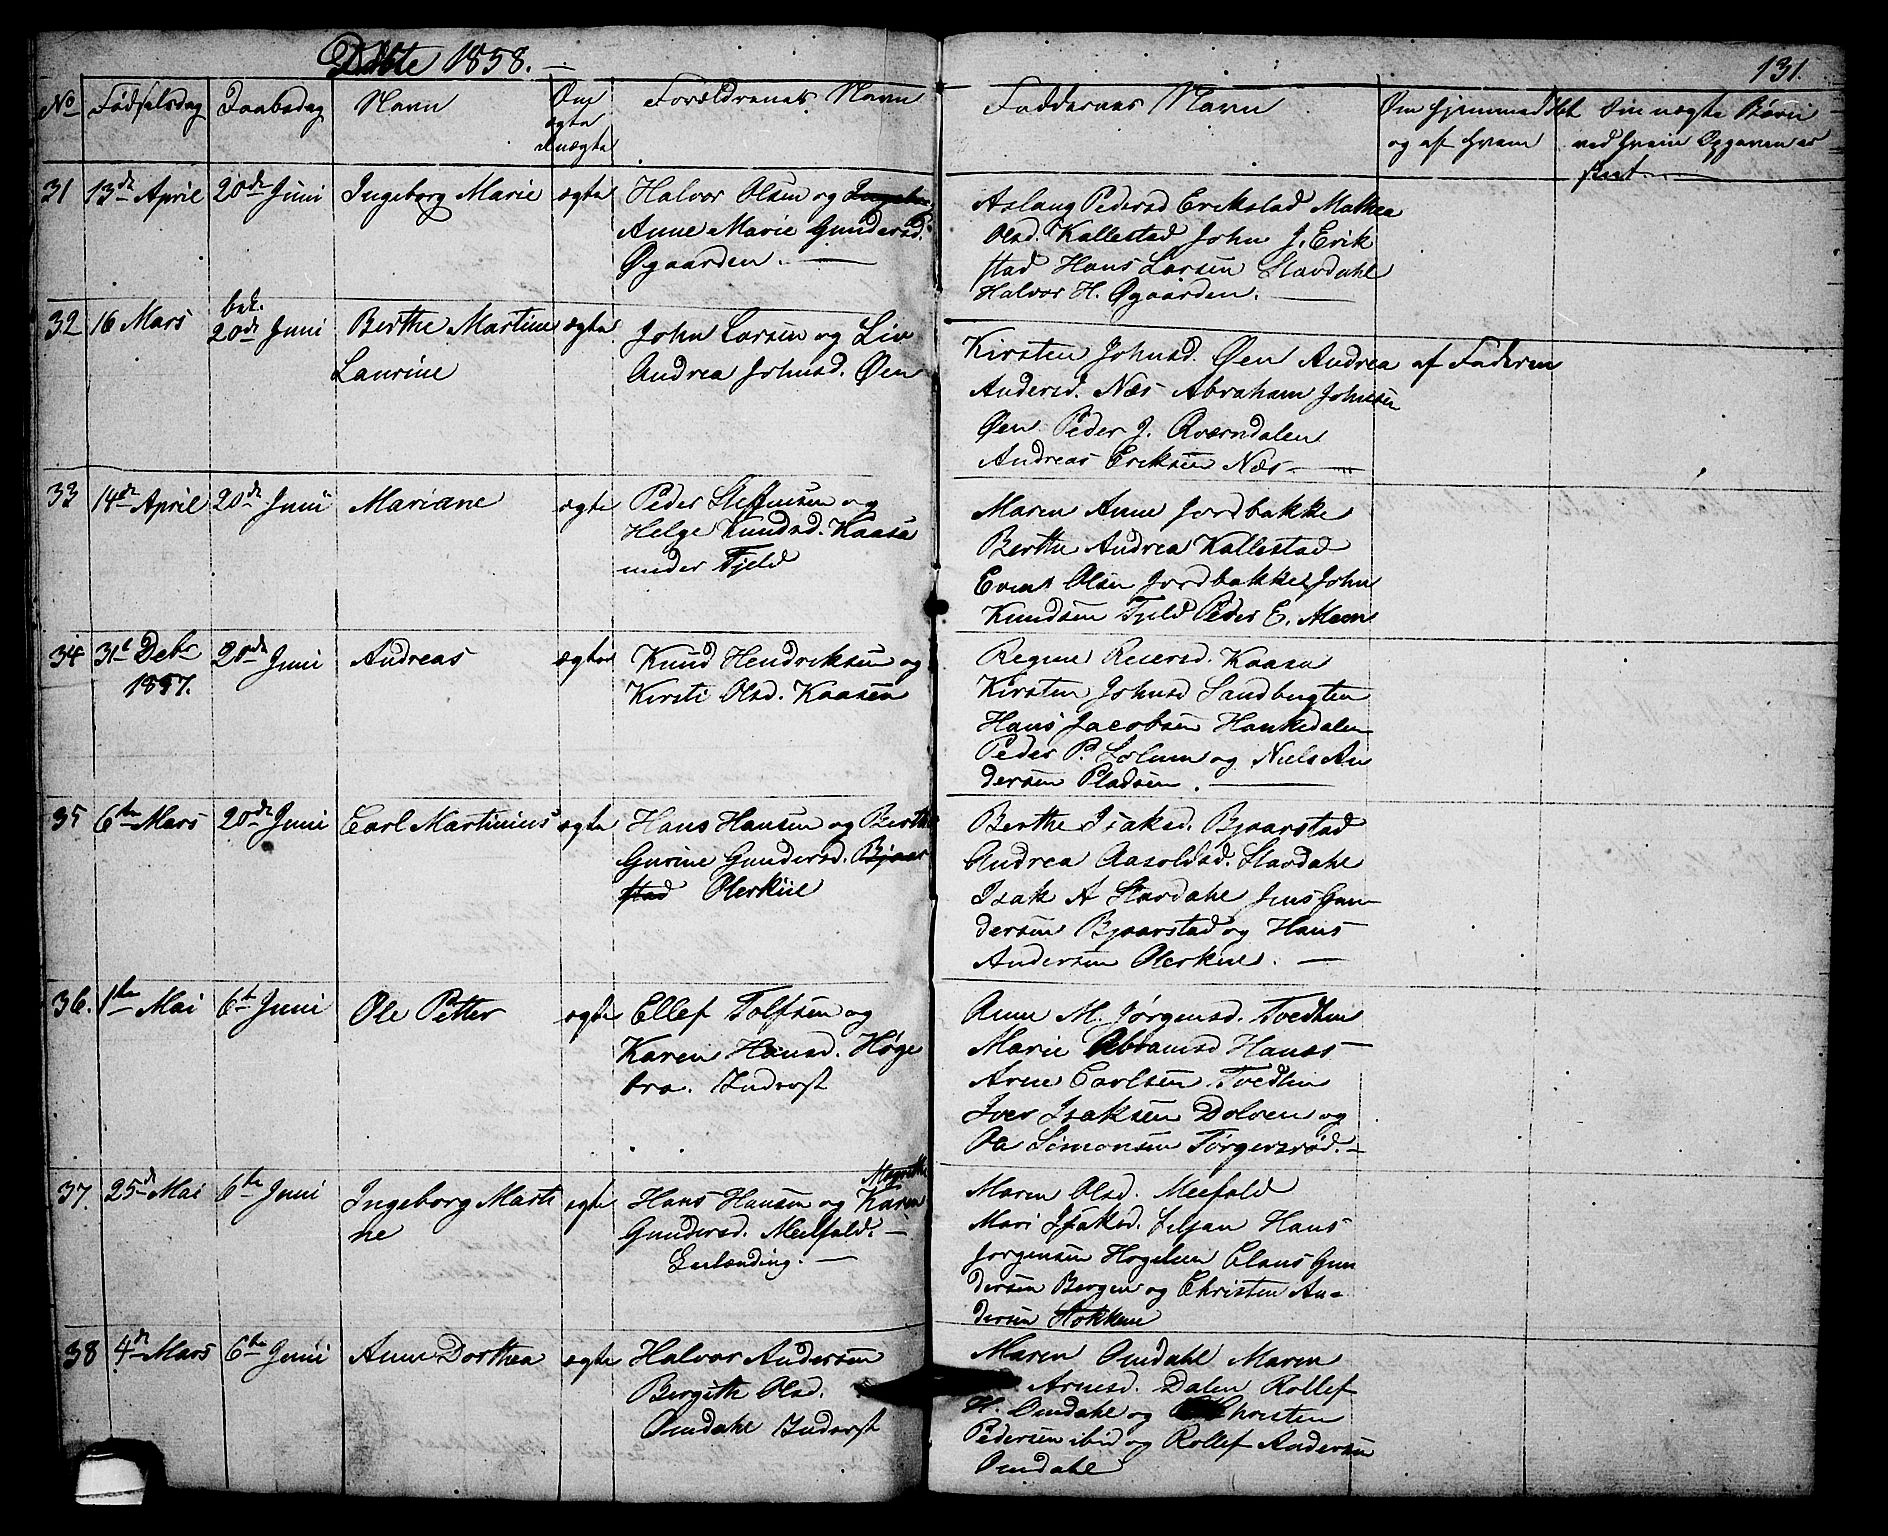 Døbte 1858.
131.
No
Fødselsdag
Daabsdag
Navn
Om
ægte
uægte
Forældrenes Navn
Faddernes Navn
Om hjemmedøbt
og af hvem
Om uægte Børn
ved hvem Opgaven er
skeet
31
13de April
20de Juni
Ingeborg Marie
ægte
Halvor Olsen og
Anne Marie Gundersd.
Øgaarden.
Aslaug Pedersd Erikstad Mathea
Olsd. Kallestad John J. Erik
stad Hans Larsen Stavdahl
Halvor H. Øgaarden.
32
16 Mars
bek.
20de Juni
Berthe Martine
Laurine
ægte
John Larsen og Liv
Andrea Johnsd. Øen
Kirsten Johnsd. Øen Andrea
Andersd. Næs Abraham Johnsen
Øen Peder J. Qværndalen
Andreas Eriksen Næs
af Faderen
33
14de April
20de Juni
Mariane
ægte
Peder Steffensen og
Helge Knudsd. Kaasa
under Fjeld
Maren Anne Jordbakke
Berthe Andrea Kallestad
Even Olsen Jordbakke, John
Knudsen Fjeld Peder E. Moen
34
31t Debr
1857.
20de Juni
Andreas
ægte
Knud Hendriksen og
Kirsti Olsd. Kaasen
Regine Reiersd. Kaasa
Kirsten Johnsd Sandbugten
Hans Jacobsen Hankedalen
Peder P. Solum og Niels An
dersen Pladsen.
35
6te Mars
20de Juni
Carl Martinius
ægte
Hans Hansen og Berthe
Gurine Gundersd. Bjaar
stad Olerkiie
Berthe Isaksd. Bjaarstad
Andrea Aasoldsd. Stavdahl
Isak A Stavdahl Jens Gun
dersen Bjaarstad og Hans
Andersen Olerkiie.
36.
1te Mai
6te Juni
Ole Petter
ægte
Ellef Tolfsen og
Karen Hansd. Høge
bra. Inderst
Anne M. Jørgensd. Tvedten
Marie Abramsd Hanæs
Arne Carlsen Tvedten
Iver Isaksen Dolven og
Ole Simonsen Torgersrød.
37.
25de Mai
6te Juni
Ingeborg Marti
ne
ægte
Hans Hansen og Karen
Gundersd. Meelfald.
Enlænding.
Maren Olsd. Meefald
Mari Isaksd. Seljan Hans
Jørgensen Hogelien Claus Gun
dersen Bergen og Christen An
dersen Stokken
38
4de Mars
6te Juni
Anne Dorthea
ægte
Halvor Andersen
Bergith Olsd.
Omdahl Inderst
Maren Omdahl Maren
Arnesd. Dalen Rollef
H. Omdahl og Christen
Pedersen ibid og Rollef Andersen
Omdahl